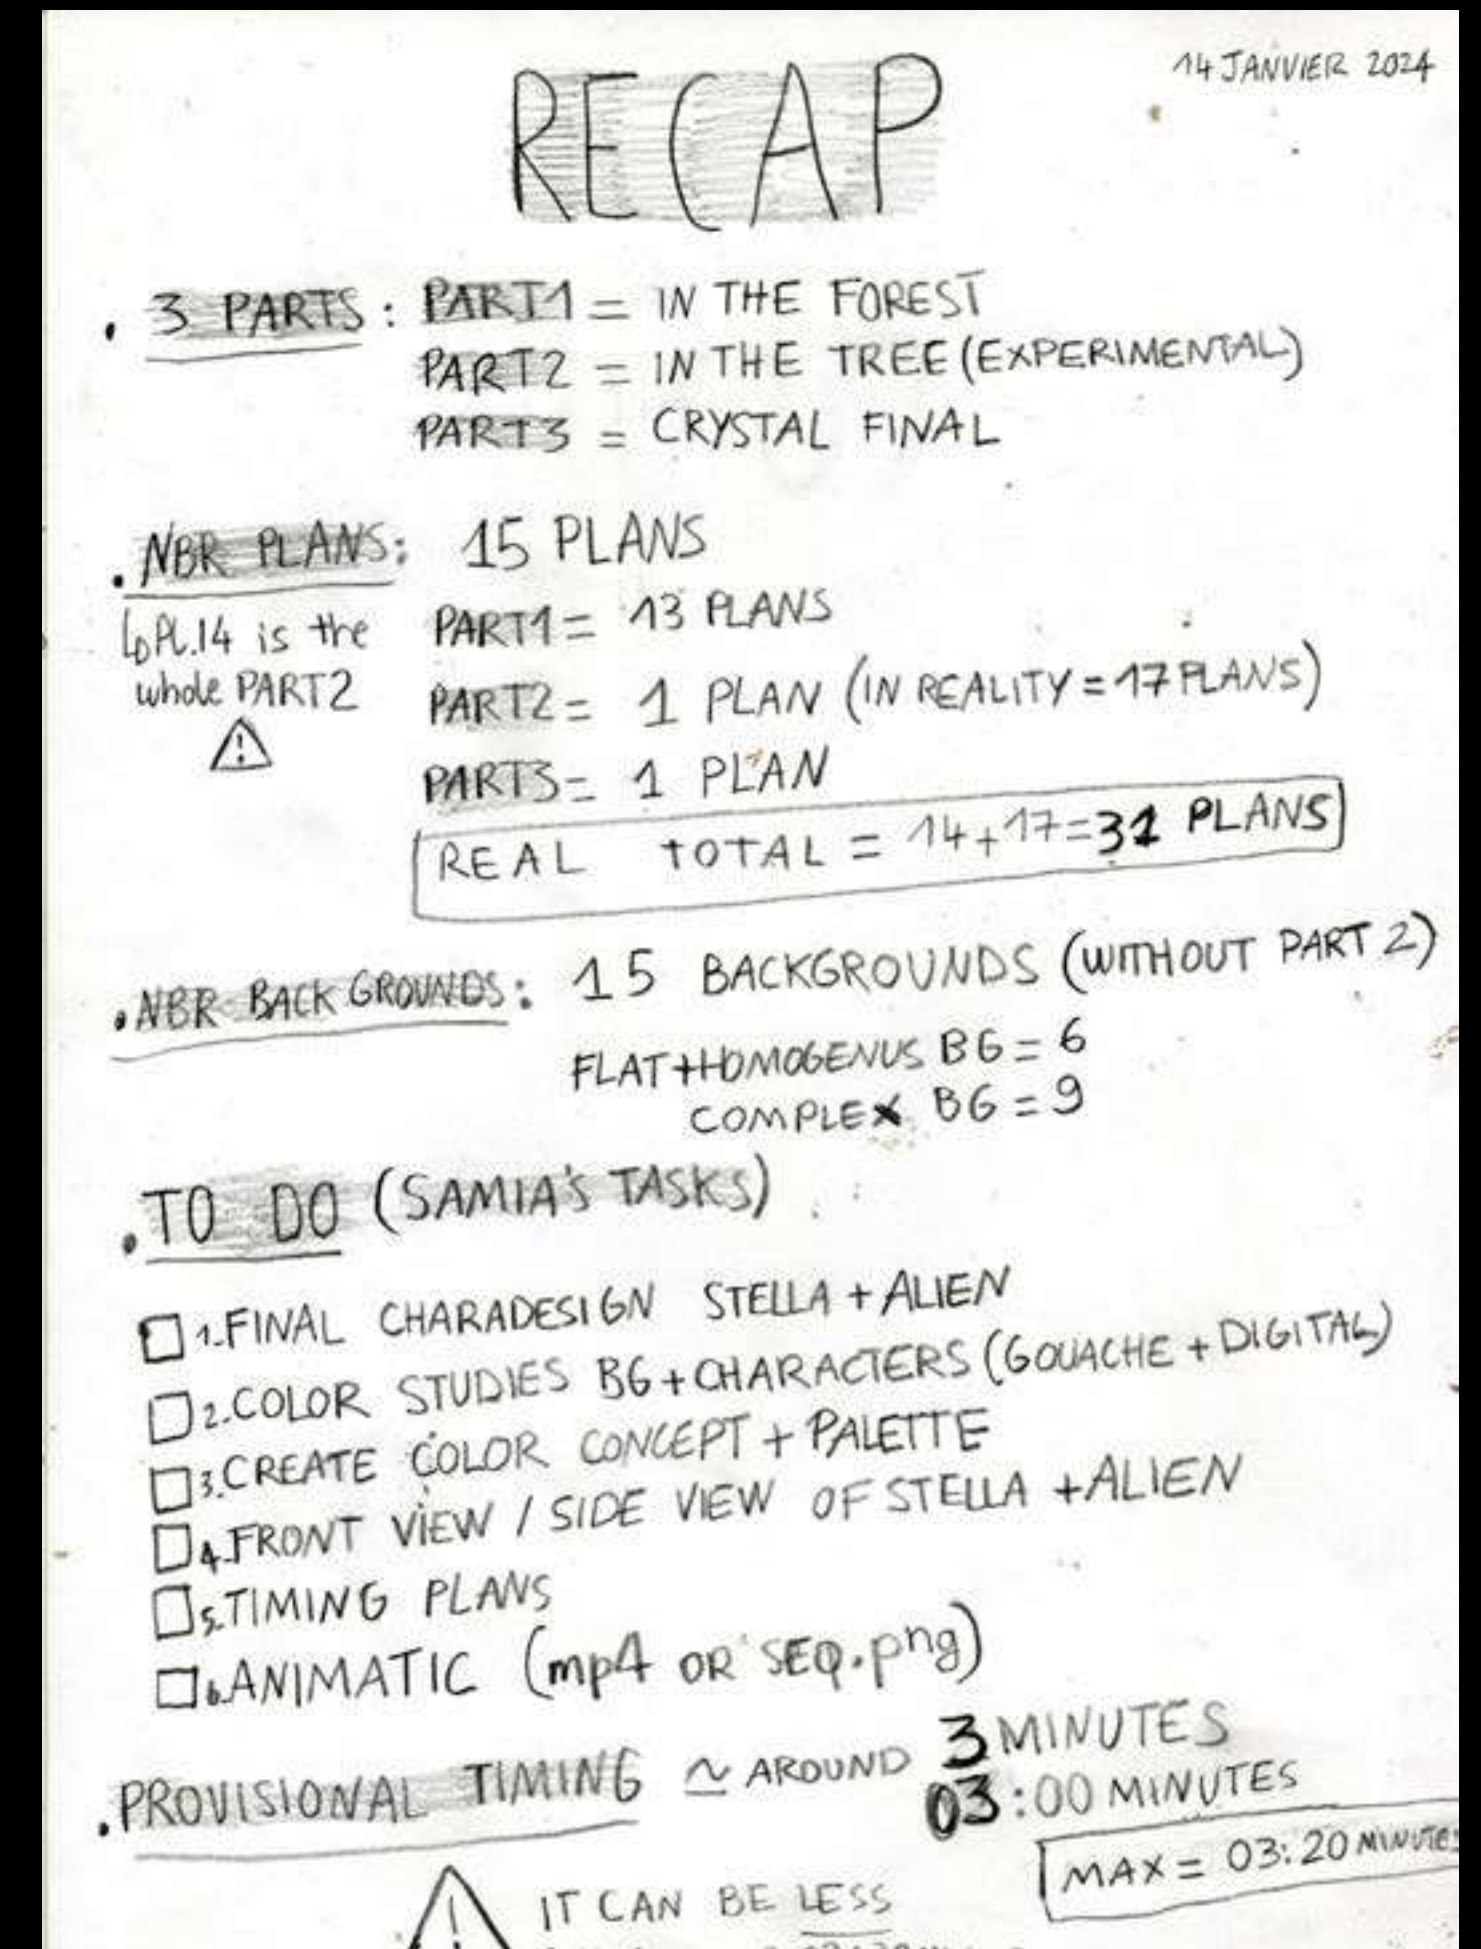 14 JANVIER 2024
RECAP
. 3 PARTS: PART1 = IN THE FOREST
PART2 = IN THE TREE (EXPERIMENTAL)
PART3 = CRYSTAL FINAL
. NBR PLANS: 15 PLANS
↳ PL.14 is the
whole PART2
PART1 = 13 PLANS
PART2 = 1 PLAN (IN REALITY = 17 PLANS)
PART3 = 1 PLAN
REAL TOTAL = 14+17=31 PLANS
. NBR BACKGROUNDS: 15 BACKGROUNDS (WITHOUT PART 2)
FLAT+HOMOGENUS BG = 6
COMPLEX BG = 9
. TO DO (SAMIA'S TASKS)
1. FINAL CHARADESIGN STELLA + ALIEN
2. COLOR STUDIES BG + CHARACTERS (GOUACHE + DIGITAL)
3. CREATE COLOR CONCEPT + PALETTE
4. FRONT VIEW / SIDE VIEW OF STELLA + ALIEN
5. TIMING PLANS
6. ANIMATIC (mp4 OR SEQ.png)
. PROVISIONAL TIMING ≃ AROUND 3 MINUTES
03:00 MINUTES
MAX = 03:20 MINUTES
IT CAN BE LESS